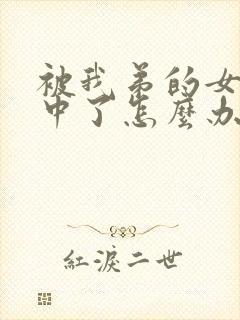 被我弟的女
中了怎麼办
紅淚二世